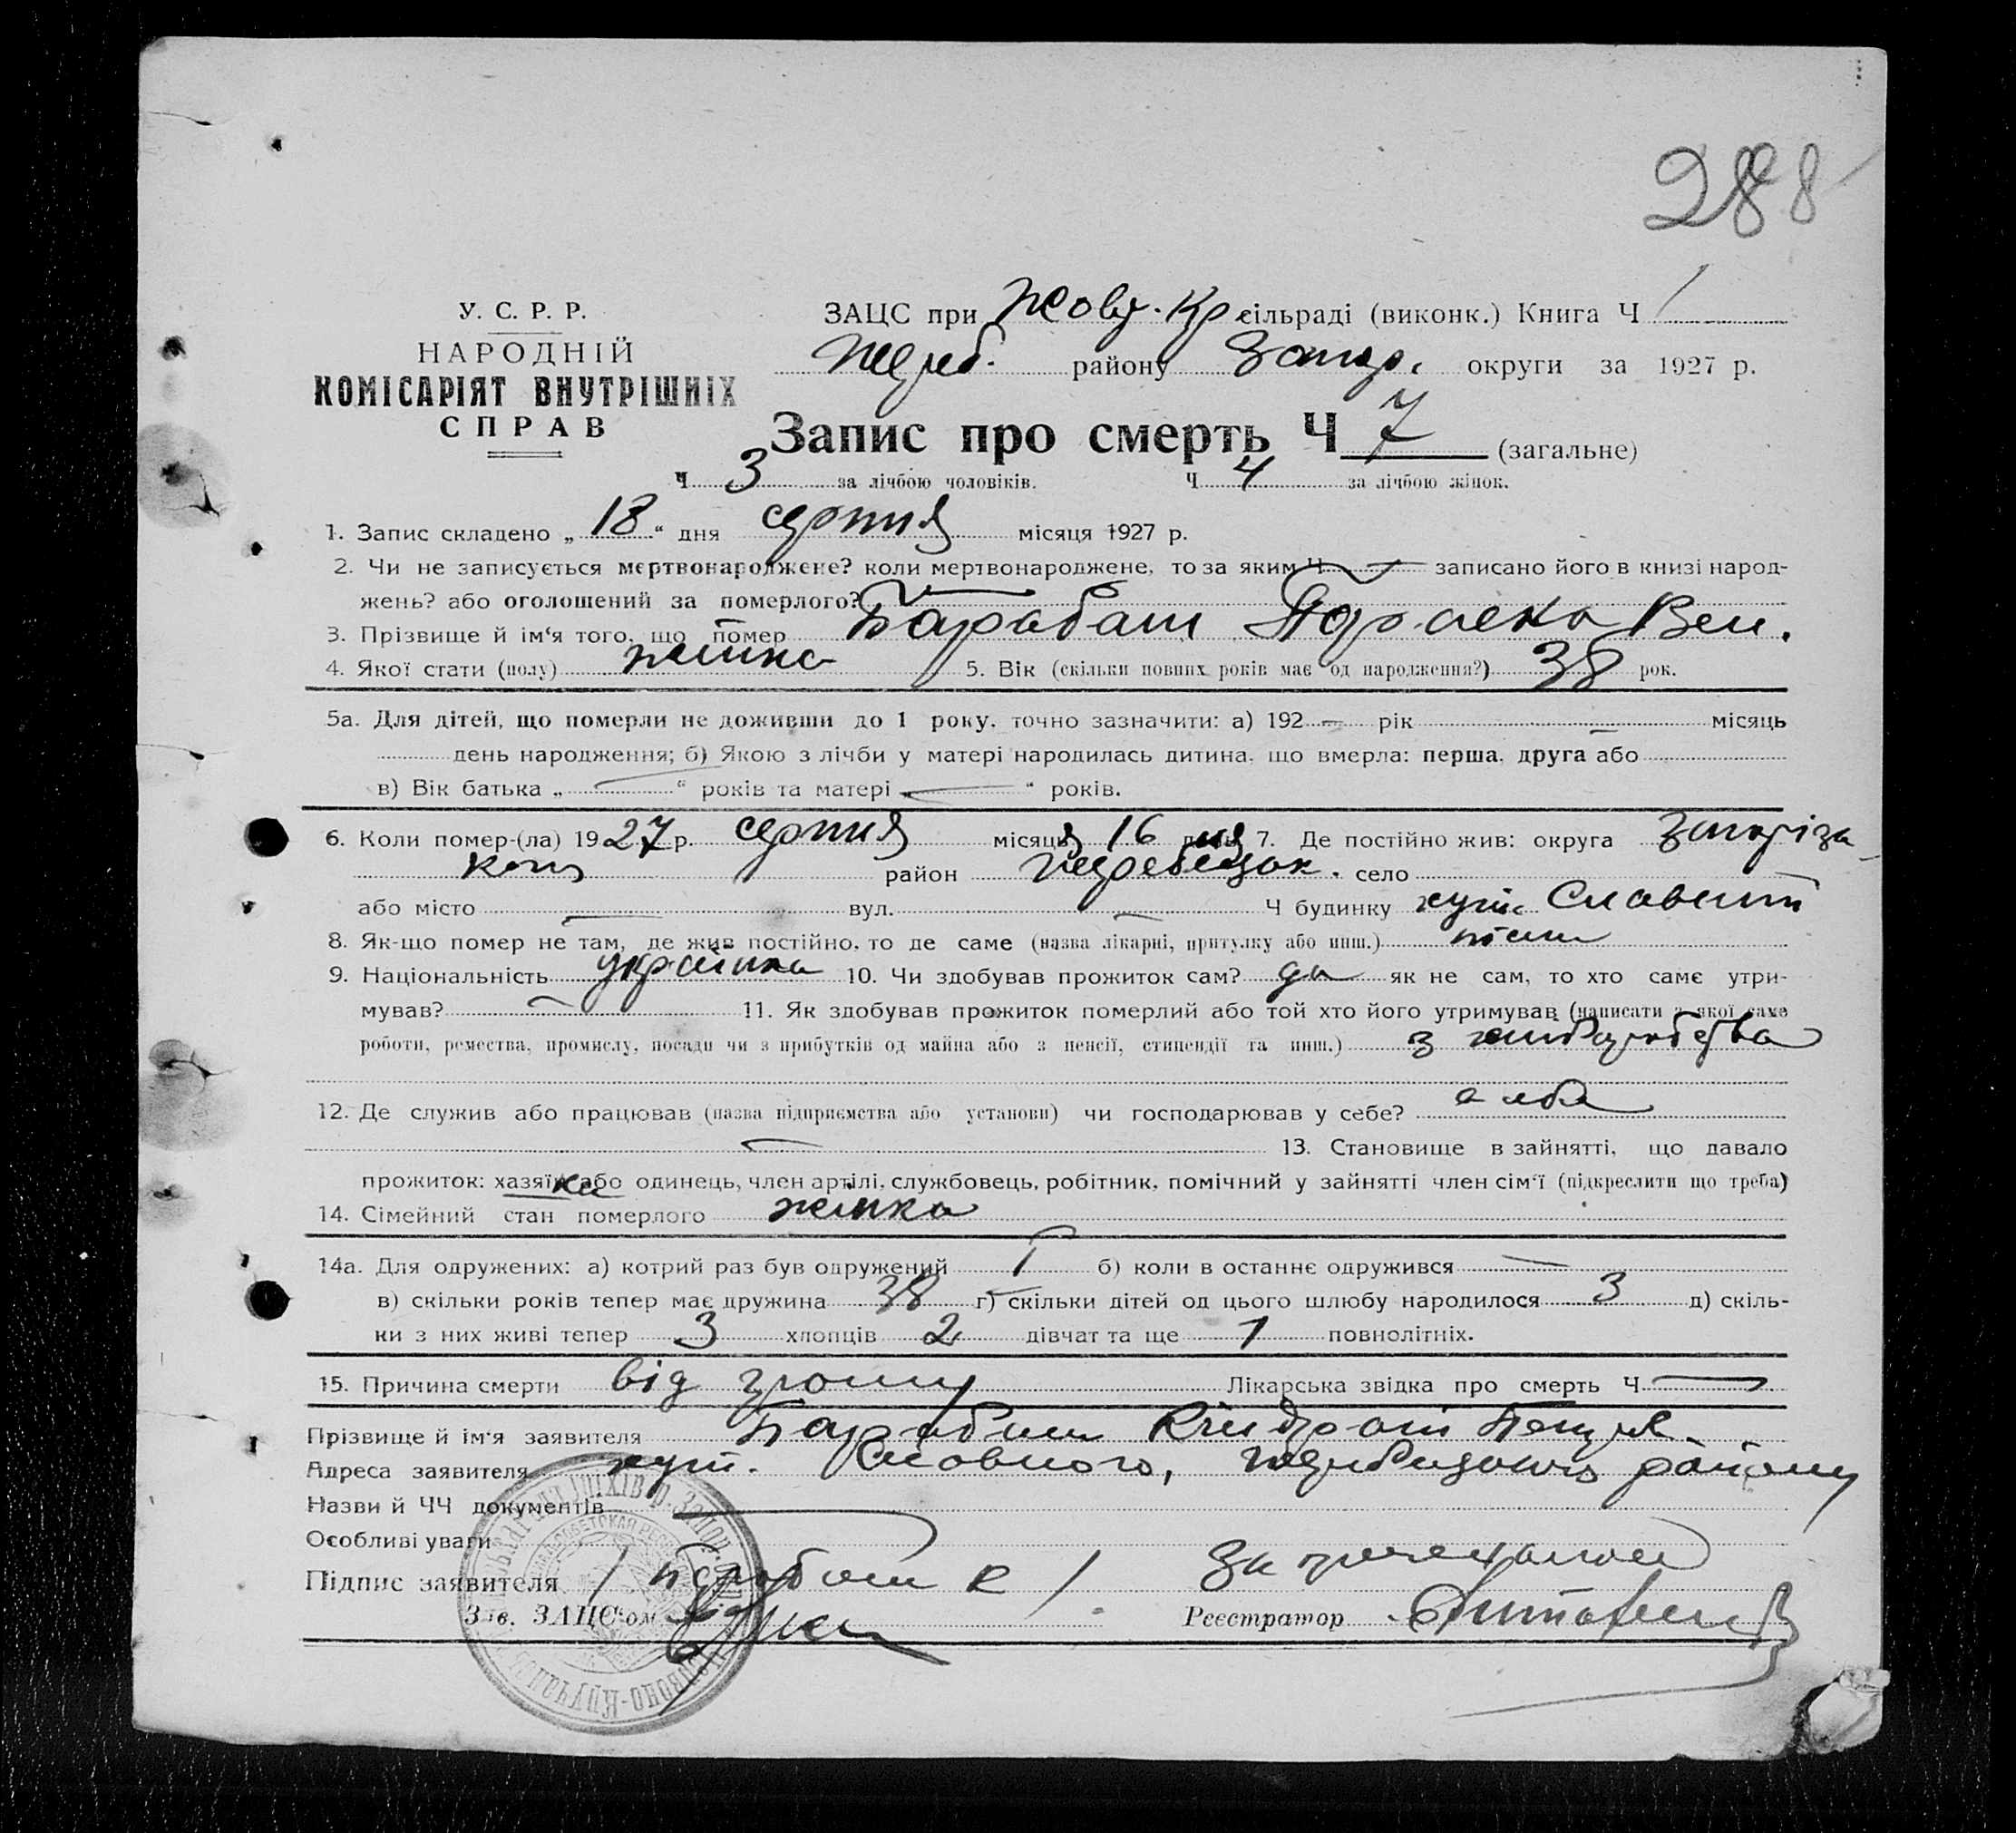 288
У. С. Р. Р.
НАРОДНІЙ
КОМІСАРІЯТ ВНУТРІШНІХ
СПРАВ
ЗАЦС при Жовт. Кр. сільраді (виконк.) Книга Ч 1
Жереб. району Запор. округи за 1927 р.
Запис про смерть Ч 7 (загальне)
Ч 3 за лічбою чоловіків. Ч 4 за лічбою жінок.
1. Запис складено „ 18 “ дня серпня місяця 1927 р.
2. Чи не записується мертвонароджене? коли мертвонароджене, то за яким Ч — записано його в книзі народ-
жень? або оголошений за померлого? —
3. Прізвище й ім‘я того, що помер Барабаш Параска
4. Якої стати (полу) жінка 5. Вік (скільки повних років має од народження?) 38 рок.
5а. Для дітей, що померли не доживши до 1 року, точно зазначити: а) 192 — рік — місяць
день народження; б) Якою з лічби у матері народилась дитина, що вмерла: перша, друга або
в) Вік батька „ — “ років та матері — “ років.
6. Коли помер-(ла) 1927 р. серпня місяця 16 дня 7. Де постійно жив: округа Запоріза-
кож район Жеребецьк. село
або місто — вул. — Ч будинку хут. Славний
8. Як-що помер не там, де жив постійно, то де саме (назва лікарні, притулку або инш.)
9. Національність українка 10. Чи здобував прожиток сам? да як не сам, то хто саме утри-
мував? — 11. Як здобував прожиток померлий або той хто його утримував (написати з якої саме
роботи, ремества, промислу, посади чи з прибутків од майна або з пенсії, стипендії та инш.) з хліборобства
12. Де служив або працював (назва підприємства або установи) чи господарював у себе? себя
— 13. Становище в зайнятті, що давало
прожиток: хазяїка або одинець, член артілі, службовець, робітник, помічний у зайнятті член сім‘ї (підкреслити що треба)
14. Сімейний стан померлого жінка
14а. Для одружених: а) котрий раз був одружений 1 б) коли в останнє одружився —
в) скільки років тепер має дружина 38 г) скільки дітей од цього шлюбу народилося 3 д) скіль-
ки з них живі тепер 3 хлопців 2 дівчат та ще 1 повнолітніх.
15. Причина смерти від грому Лікарська звідка про смерть Ч —
Прізвище й ім‘я заявителя Барабаш Кіндрат
Адреса заявителя хут. Славного, Жеребецького району
Назви й ЧЧ документів —
Особливі уваги
Підпис заявителя / Барабаш К /. За
Зав. ЗАЦС‘ом Реєстратор